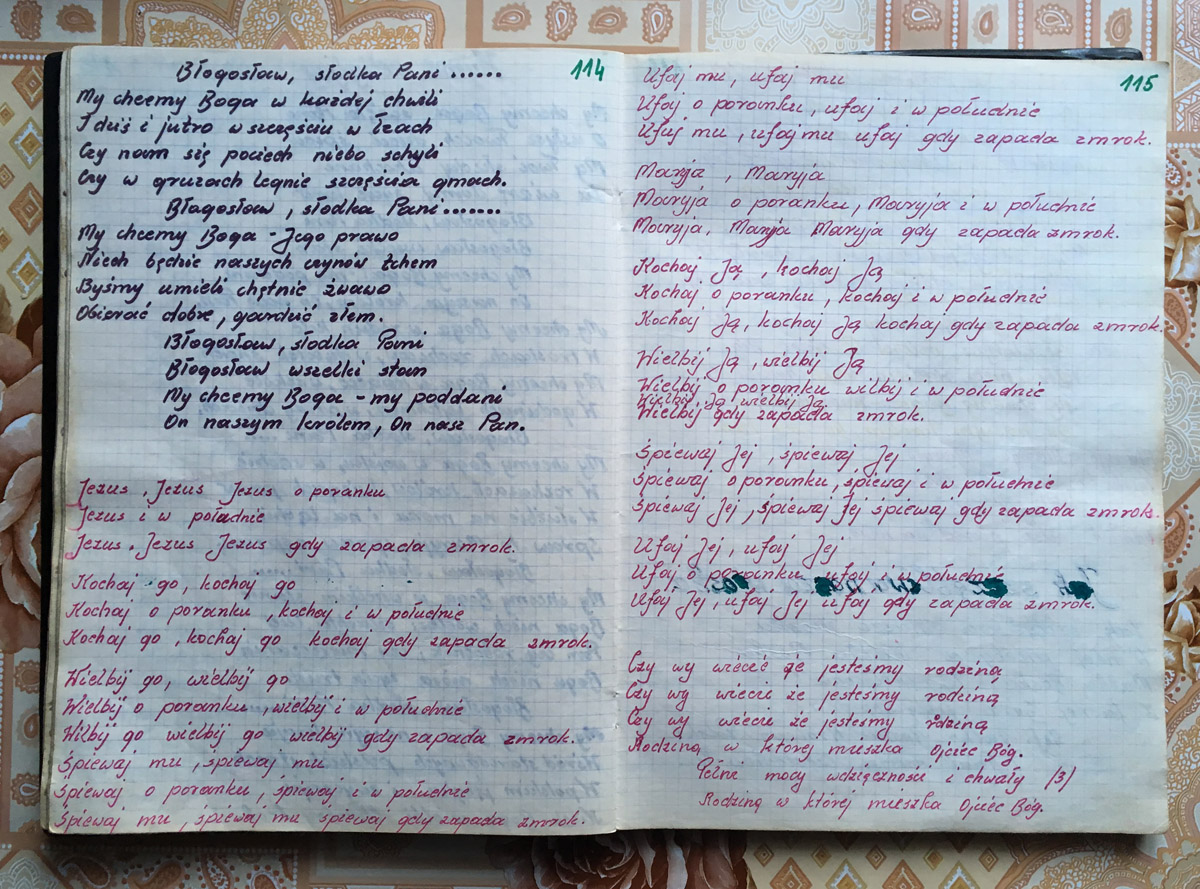 Błogosław, słodka Pani ...... 114
My chcemy Boga w każdej chwili
I dziś i jutro w szczęściu w łzach
Czy nam się pociech niebo schyli
Czy w gruzach legnie szczęścia gmach.
Błogosław, słodka Pani .......
My chcemy Boga - Jego prawo
Niech będzie naszych czynów tchem
Byśmy umieli chętnie żwawo
Obierać dobre, gardzić złem.
Błogosław, słodka Pani
Błogosław wszelki stan
My chcemy Boga - my poddani
On naszym królem, On nasz Pan.
Jezus, Jezus Jezus o poranku
Jezus i w południe
Jezus, Jezus Jezus gdy zapada zmrok.
Kochaj go, kochaj go
Kochaj o poranku, kochaj i w południe
Kochaj go, kochaj go kochaj gdy zapada zmrok.
Wielbij go, wielbij go
Wielbij o poranku, wielbij i w południe
Wilbij go wielbij go wielbij gdy zapada zmrok.
Śpiewaj mu, śpiewaj mu
Śpiewaj o poranku, śpiewaj i w południe
Śpiewaj mu, śpiewaj mu śpiewaj gdy zapada zmrok.
Ufaj mu, ufaj mu 115
Ufaj o poranku, ufaj i w południe
Ufaj mu, ufaj mu ufaj gdy zapada zmrok.
Maryja, Maryja
Maryja o poranku, Maryja i w południe
Maryja, Maryja Maryja gdy zapada zmrok.
Kochaj Ją, kochaj Ją
Kochaj o poranku, kochaj i w południe
Kochaj Ją, kochaj Ją kochaj gdy zapada zmrok.
Wielbij Ją, wielbij Ją
Wielbij o poranku wilbij i w południe
Wielbij Ją wielbij Ją
Wielbij gdy zapada zmrok.
Śpiewaj Jej, śpiewaj Jej
Śpiewaj o poranku, śpiewaj i w południe
Śpiewaj Jej, śpiewaj Jej śpiewaj gdy zapada zmrok.
Ufaj Jej, ufaj Jej
Ufaj o poranku ufaj i w południe
Ufaj Jej, ufaj Jej ufaj gdy zapada zmrok.
Czy wy wiecie że jesteśmy rodziną
Czy wy wiecie że jesteśmy rodziną
Czy wy wiecie że jesteśmy rodziną
Rodziną w której mieszka Ojciec Bóg.
Pełni mocy wdzięczności i chwały /3/
Rodziną w której mieszka Ojciec Bóg.